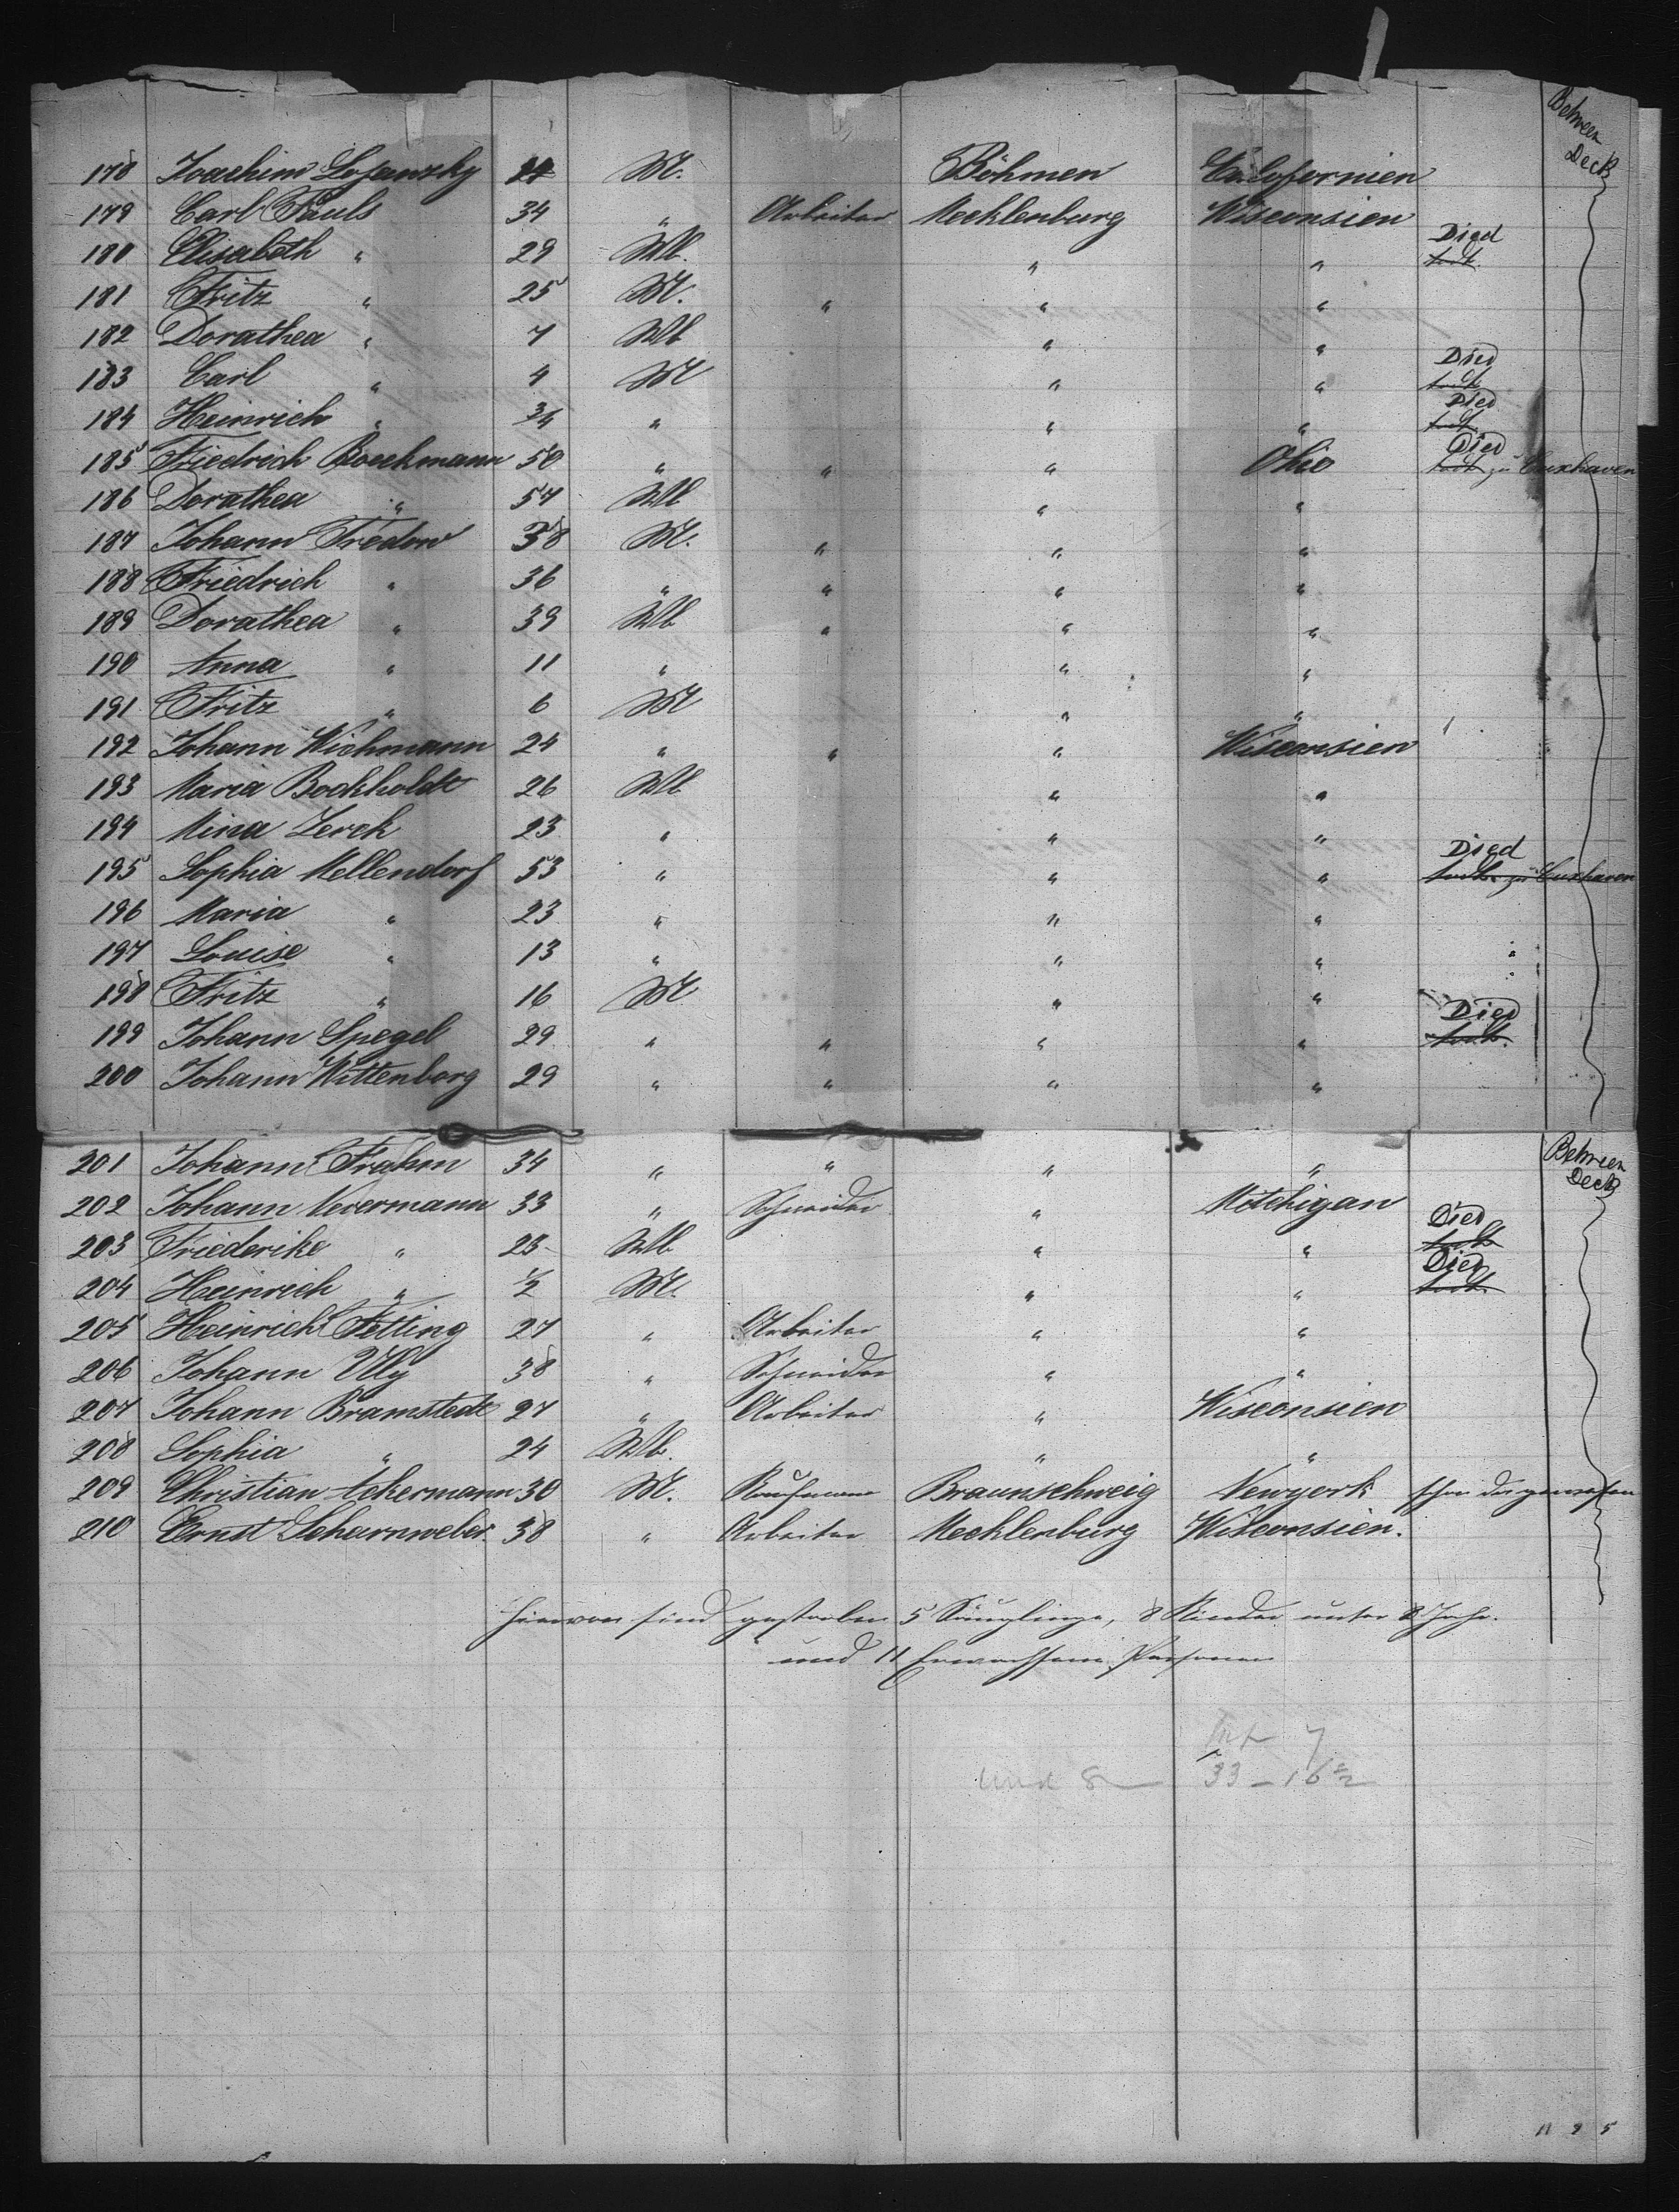 Between
Deck
178 Joachim Losanzky 24 M. Böhmen Californien
179 Carl Pauls 34 " Arbeiter Mecklenburg Wisconsien
180 Elisabeth " 29 Wb. " " Died todt
181 Fritz " 25 M. " " "
182 Dorathea " 7 Wb " "
183 Carl " 4 M " " Died todt
184 Heinrich " 3/4 " " " Died todt
185 Friedrich Boeckmann 50 " " " Ohio Died todt zu Cuxhaven
186 Dorathea " 57 Wb " "
187 Johann Tredow 38 M. " " "
188 Friedrich " 36 " " " "
189 Dorathea " 39 Wb " " "
190 Anna " 11 " " "
191 Fritz " 6 M " "
192 Johann Wichmann 24 " " " Wisconsien
193 Maria Bockholdt 26 Wb " "
194 Mina Lerch 23 " " "
195 Sophia Mellendorf 53 " " " Died todt zu Cuxhaven
196 Maria " 23 " " "
197 Louise " 13 " " "
198 Fritz " 16 M " "
199 Johann Spegel 29 " " " " Died todt.
200 Johann Wittenborg 29 " " " "
Between
Deck
201 Johann Frahm 34 " " " "
202 Johann Nevermann 33 " Schneider " Mitchigan
203 Friederike " 23 Wb " " Died todt
204 Heinrich " 1/2 M. " " Died todt
205 Heinrich Fetting 27 " Arbeiter " "
206 Johann Ully 38 " Schneider " "
207 Johann Bramstedt 27 " Arbeiter " Wisconsien
208 Sophia " 24 Wb. " "
209 Christian Ackermann 30 M. Kaufmann Braunschweig Newyork schon da gewesen
210 Ernst Scharnweber 38 " Arbeiter Mecklenburg Wisconsien.
hiervon sind gestorben 5 Säuglinge, 8 Kinder unter 8 Jahr.
und 11 Erwachsene Personen
7
33 – 16 1/2
11 8 5